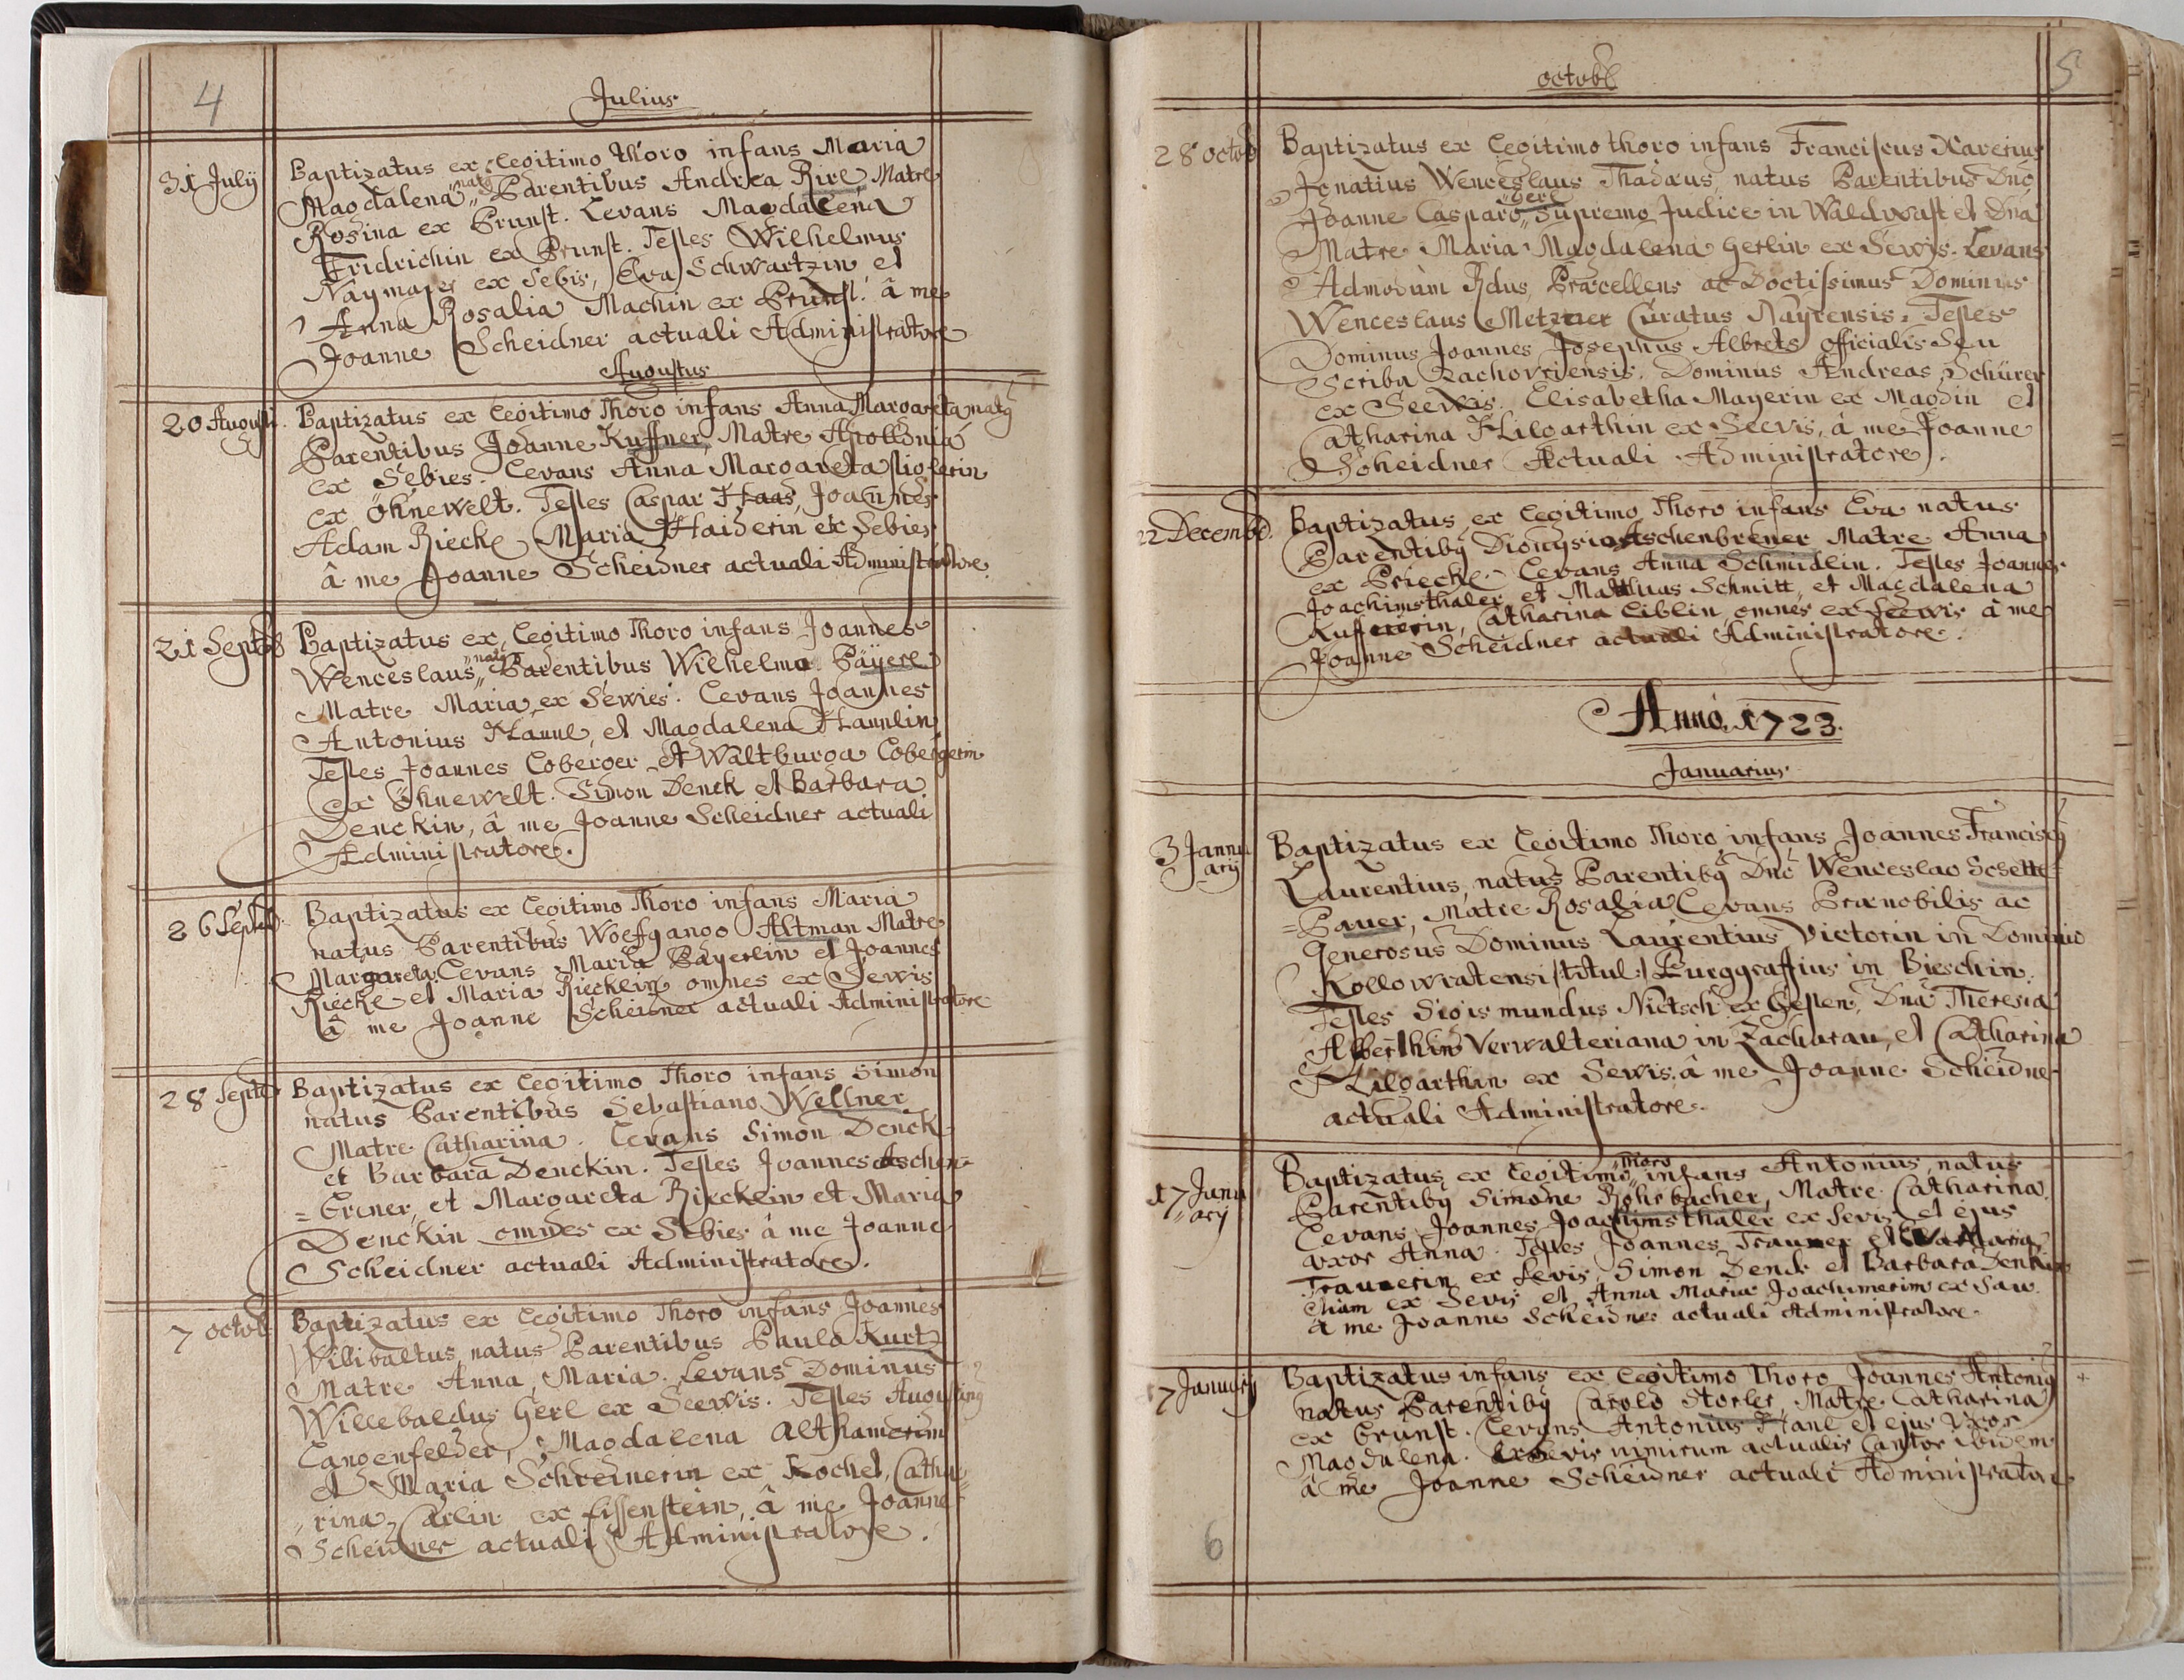 4
Julius
31 July
Baptizatus ex Legitimo thoro infans Maria
Magdalena natg Parentibus Andrea Rire Matre
Rosina ex Prunst. Levans Magdalena
Fridrichin ex Prunst. Testes Wilhelmus
Naymajer ex Sebis, Eva Schwartzin et
Anna Rosalia Machin ex Prunst. â me
Joanne Scheidner actuali Administratore
Augustus
20 Augusti.
Baptizatus ex Legitimo Thoro infans Anna Margareta natg
Parentibus Joanne Kuffner, Matre Apollonia
ex Sebies. Levans Anna Margareta
ex Öhnewelt. Testes Caspar Haas, Joannes
Adam Riecke Maria Haiderin ex Sebies
â me Joanne Scheidner actuali Administratore.
21 Septb
Baptizatus ex Legitimo Thoro infans Joannes
Wenceslaus natg Parentibus Wilhelmo Päyerl
Matre Maria ex Sewies. Levans Joannes
Antonius Hannl, et Magdalena Hannlin
Testes Joannes Coberger et Waltburga Cobergerin
ex Öhnewelt. Simon Denck et Barbara
Denckin, â me Joanne Scheidner actuali
Administratore.
26 Septb.
Baptizatus ex Legitimo Thoro infans Maria
natus Parentibus Wolfgango Altman Matre
Margareta. Levans Maria Päyerlin et Joannes
Riecke et Maria Riecklein omnes ex Sewis
â me Joanne Scheidner actuali Administratore
28 Septb
Baptizatus ex Legitimo Thoro infans Simon
natus Parentibus Sebastiano Wellner
Matre Catharina. Levans Simon Denck
et Barbara Denckin. Testes Joannes Aschen=
=brener, et Margareta Riecklein et Maria
Denckin omnes ex Sebies â me Joanne
Scheidner actuali Administratore.
7 octob.
Baptizatus ex Legitimo Thoro infans Joannes
Wilibaltus natus Parentibus Paulo Kurtz
Matre Anna Maria. Levans Dominus
Willebaldus Gerl ex Seewis. Testes Augusting
Langenfelder, Magdalena Althamerin
et Maria Schreinerin ex Kochet, Catha=
"rina Carlin ex Eissenstein, â me Joanne
Scheidner actuali Administratore.
octobr
5
28 octob
Baptizatus ex Legitimo thoro infans Franciscus Xaverius
Ignatius Wenceslaus Thadæus, natus Parentibus Dno
Joanne Casparo Gerl Supremo Judice in Waldwast et Dna
Matre Maria Magdalena Gerlin ex Sewis. Levans
Admodum Rdus, Præcellens ac Doctissimus Dominus
Wenceslaus Metzner Curatus Nayrensis. Testes
Dominus Joannes Josephus Albrets officialis Seu
Scriba Zachoviensis. Dominus Andreas Schürer
ex Seewis. Elisabetha Mayerin ex Magdin et
Catharina Hilgarthin ex Seevis, â me Joanne
Scheidner Actuali Administratore.
22 Decembr.
Baptizatus ex Legitimo Thoro infans Eva natus
Parentibg Dionysio Aschenbrener Matre Anna
ex Priecke. Levans Anna Schmidlin. Testes Joannes
Joachimsthaler et Matthias Schmitt, et Magdalena
Kuffnerin, Catharina Liblin, omnes ex Seewis â me
Joanne Scheidner actuali Administratore.
Anno. 1723.
Januarius
3 Janu
arij
Baptizatus ex Legitimo Thoro infans Joannes Franciscg
Laurentius, natus Parentibg Dno Wenceslao Schette=
=Pauer, Matre Rosalia Levans Prænobilis ac
Generosus Dominus Laurentius Victorin in Dominio
Kollowratensi /:titul:/ Burggraffius in Bieschin.
Testes Sigismundus Nietsch ex Gesten, Dna Theresia
Alberthin Verwalteriana in Zacharau, et Catharina
Hilgarthin ex Sewis. â me Joanne Scheidner
actuali Administratore.
17 Janu
"arij
Baptizatus ex Legitimo thoro infans Antonius, natus
Parentibg Simone Röhrbacher, Matre Catharina.
Levans Joannes Joachimsthaler ex Sevis et ejus
Uxor Anna. Testes Joannes Trauner et Eva Maria
Traunerin ex Sevis, Simon Denck et Barbara Denkin
etiam ex Sevis et Anna Maria Joachimerin ex Saw.
â me Joanne Scheidner actuali Administratore.
17 Januarij
Baptizatus infans ex Legitimo Thoro Joannes Antonig
natus Parentibg Carolo Storler, Matre Catharina
ex Brunst. Levans Antonius Hanl et ejus Uxor
Magdalena. ex Sevis nimirum actualis Cantor ibidem
â me Joanne Scheidner actuali Administratore
6